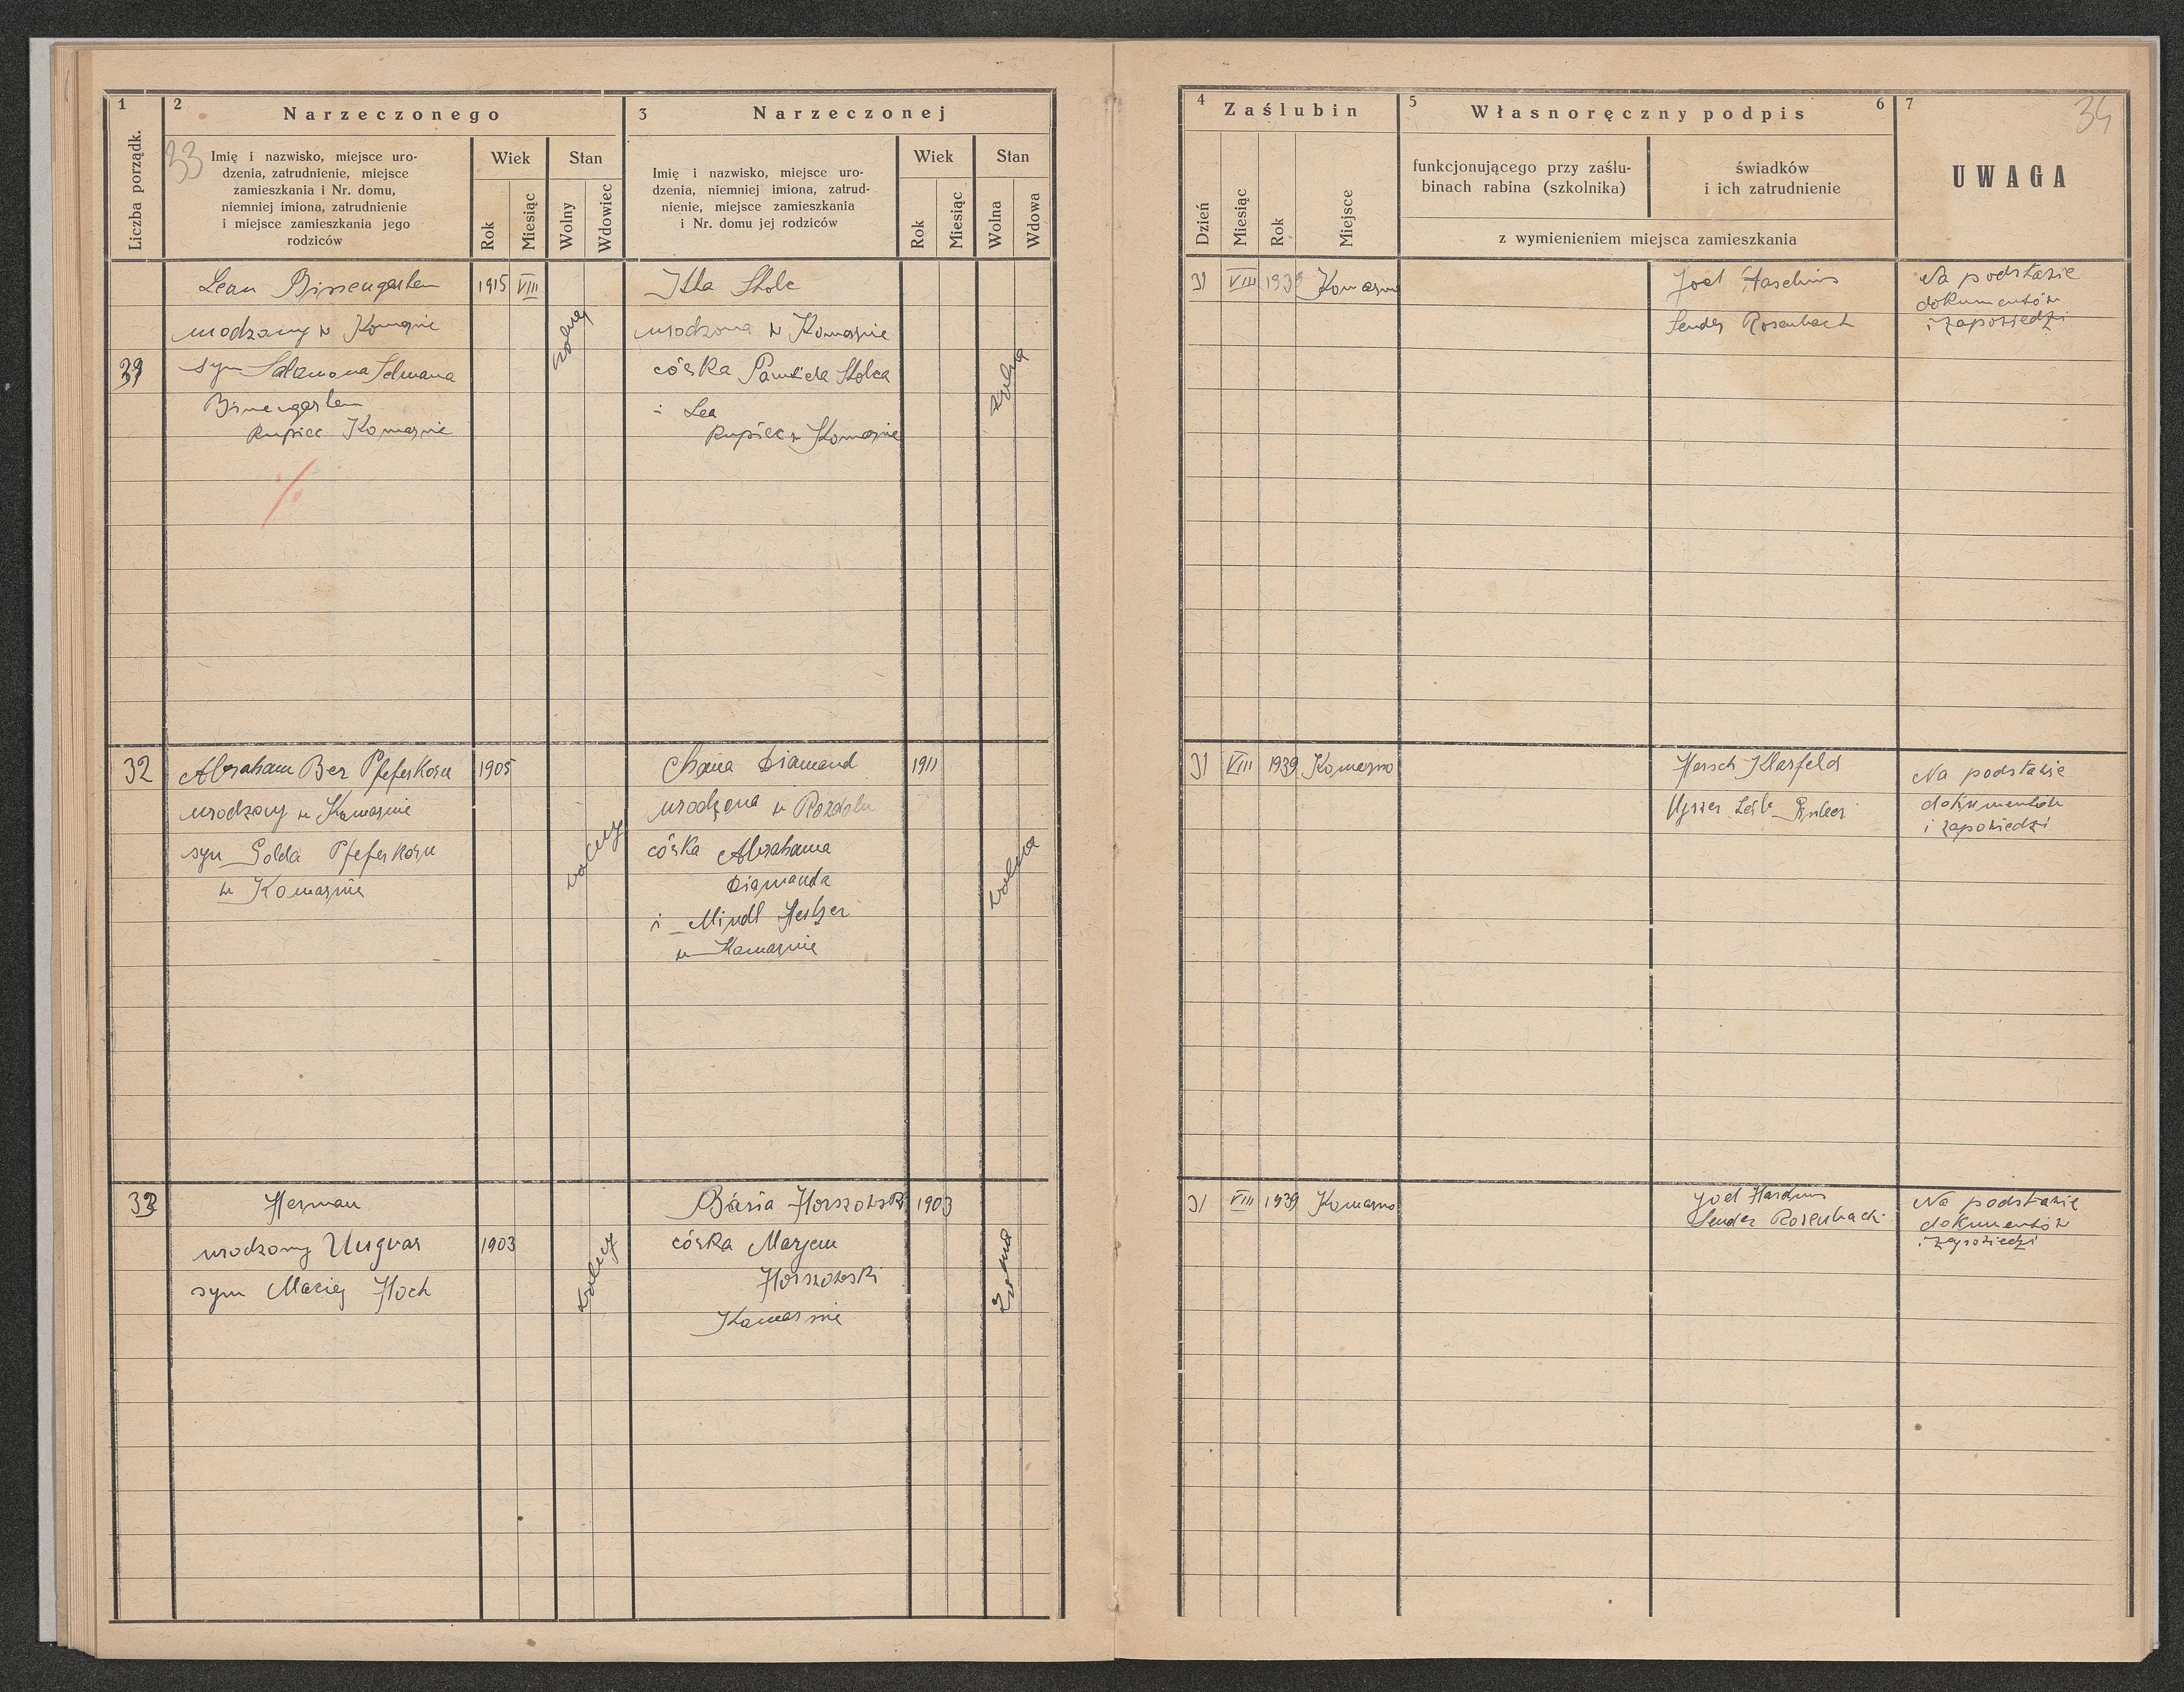 33
34
1
2
Narzeczonego
3
Narzeczonej
Liczba porządk.
Imię i nazwisko, miejsce uro-
dzenia, zatrudnienie, miejsce
zamieszkania i Nr. domu,
niemniej imiona, zatrudnienie
i miejsce zamieszkania jego
rodziców
Wiek
Rok
Miesiąc
Stan
Wolny
Wdowiec
Imię i nazwisko, miejsce uro-
dzenia, niemniej imiona, zatrud-
nienie, miejsce zamieszkania
i Nr. domu jej rodziców
Wiek
Rok
Miesiąc
Stan
Wolna
Wdowa
4
Zaślubin
5
Własnoręczny podpis
6
7
Dzień
Miesiąc
Rok
Miejsce
funkcjonującego przy zaślu-
binach rabina (szkolnika)
świadków
i ich zatrudnienie
z wymienieniem miejsca zamieszkania
UWAGA
Leon
urodzony w Komarnie
syn Salamona
kupiec Komarnie
1915 VIII
wolny
Itta Stolc
urodzona w Komarnie
córka Stolca
i Lea
kupiec w Komarnie
wolna
31 VIII 1939 Komarno
Joel
Sender Rosenbach
Na podstawie
dokumentów
i zapowiedzi
32
Abraham Ber Pfeferkorn
urodzony w Komarnie
syn Golda Pfeferkorn
w Komarnie
1905
wolny
Chana Diamand
urodzona w Rozdole
córka Abrahama
Diamanda
i Mindl
w Komarnie
1911
wolna
31 VIII 1939 Komarno
Hersch Klarfeld
Na podstawie
dokumentów
i zapowiedzi
33
Herman
urodzony Ungvar
syn Maciej Hoch
1903
wolny
Basia Horszowski
córka Marjem
Horszowski
Komarnie
1903
wolna
31 VIII 1939 Komarno
Joel
Sender Rosenbach
Na podstawie
dokumentów
i zapowiedzi